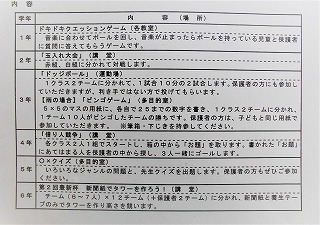 内容
学年 内　　容　（場　所）
1年 ドキドキクエッションゲーム（各教室）
音楽に合わせてボールを回し、音楽が止まったらボールを持っている児童と保護者に質問に答えてもらうゲームです。
2年 「玉入れ大会」（講　堂）
赤組、白組に分かれて対戦します。
3年 「ドッジボール」（運動場）
1クラス2チームに分かれて、1試合10分の2試合します。保護者の方にも参加していただきますが、利き手ではない方で投げてもらいます。
【雨の場合】「ビンゴゲーム」（多目的室）
5×5のマスの用紙に、各自で25までの数字を書き、1クラス2チームに分かれ、
1チーム10人がビンゴしたチームの勝ちです。保護者の方は、子どもと同じ用紙で
参加していただきます。　※筆箱・下じきを持参してください。
4年 「借り人競争」（講　堂）
各クラス2人1組でスタートし、箱の中から「お題」を取ります。書かれた「お題」
にあてはまる人を保護者の中から探し、3人一緒にゴールします。
5年 〇×クイズ（多目的室）
いろいろなジャンルの問題と、先生クイズを出します。保護者の方もぜひご参加ください。
6年 第2回最新杯　新聞紙でタワーを作ろう！（講　堂）
チーム（6～7人）×12チーム（＋保護者2チーム）に分かれ、新聞紙と養生テープのみでタワーを作り高さを競います。